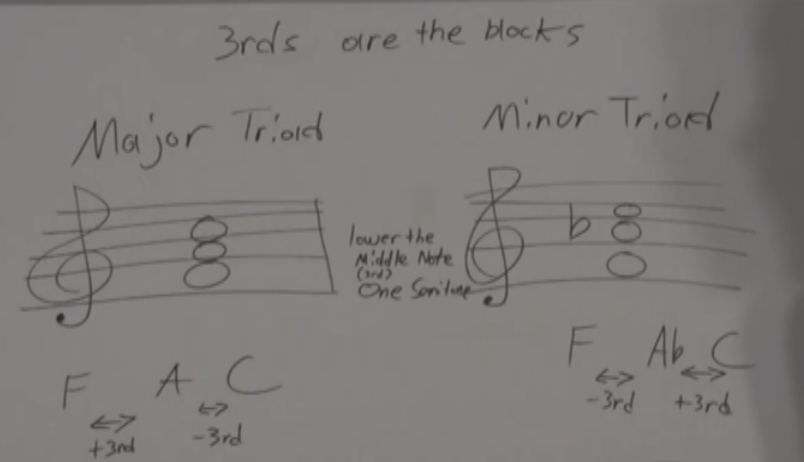 3rds are the blocks
Major Triad
Minor Triad
lower the
Middle Note
(3rd)
One Semitone
b
F A C
+3rd -3rd
F Ab C
-3rd +3rd